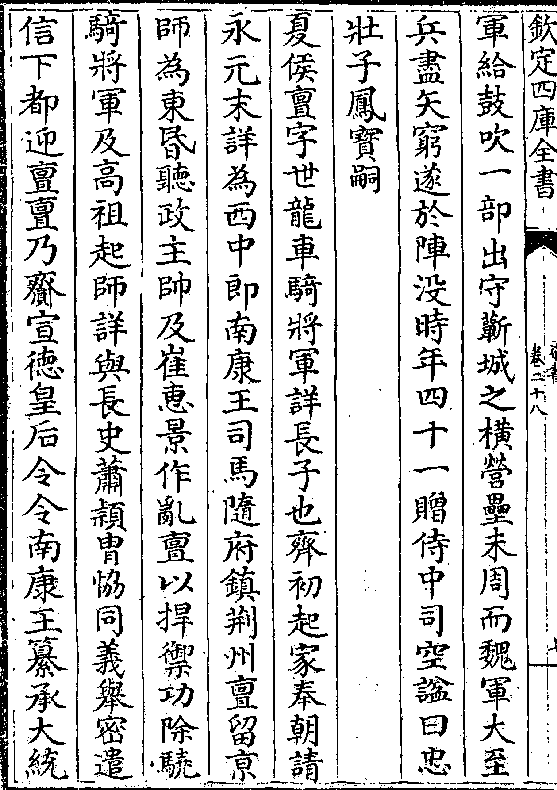 欽定四庫全書
卷二十八
軍給鼓吹一部出守蘄城之橫營壘未周而魏軍大至
兵盡矢窮遂於陣没時年四十一贈侍中司空諡曰忠
壯子鳳寶嗣
夏侯亶字世龍車騎將軍詳長子也齊初起家奉朝請
永元末詳為西中郎南康王司馬隨府鎮荆州亶留京
師為東昏聽政主帥及崔惠景作亂亶以捍禦功除驍
騎將軍及高祖起師詳與長史蕭穎胄恊同義舉密遣
信下都迎亶亶乃齎宣徳皇后令令南康王纂承大統